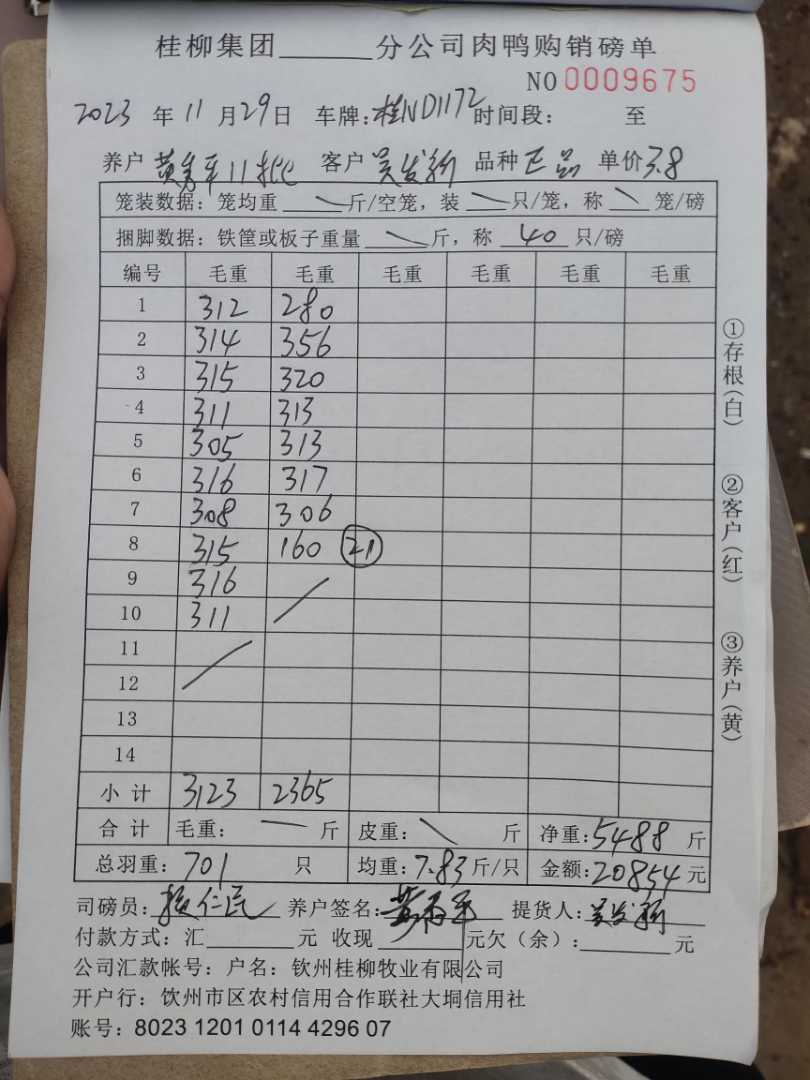 桂柳集团______分公司肉鸭购销磅单
NO 0009675
2023 年 11 月 29 日 车牌:桂ND1172 时间段: 至
养户 黄 平11批 客户 吴发新 品种 正品 单价 3.8
笼装数据: 笼均重 ____斤/空笼, 装 ____只/笼, 称 ____ 笼/磅
捆脚数据: 铁筐或板子重量 ____斤, 称 40 只/磅
编号 毛重 毛重 毛重 毛重 毛重 毛重
1 312 280
2 314 356
3 315 320
4 311 313
5 305 313
6 316 317
7 308 306
8 315 160 21
9 316
10 311
11
12
13
14
小计 3123 2365
合计 毛重: — 斤 皮重: \ 斤 净重:5488 斤
总羽重: 701 只 均重:7.83 斤/只 金额:20854 元
司磅员: 仁 养户签名:黄 平 提货人:吴发新
付款方式: 汇______元 收现______元欠(余):______元
公司汇款帐号: 户名: 钦州桂柳牧业有限公司
开户行: 饮州市区农村信用合作联社大垌信用社
账号: 8023 1201 0114 4296 07
①存根(白)
②客户(红)
③养户(黄)